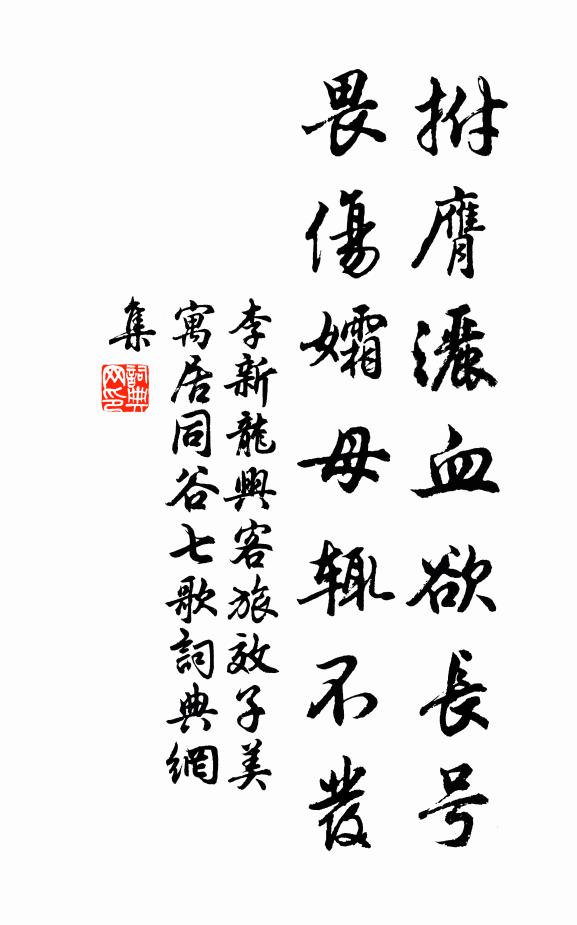 拊膺灑血欲長号
畏傷孀母輒不發
李新龍興客旅效子美
寓居同谷七歌詞典網
集
詞典
网印